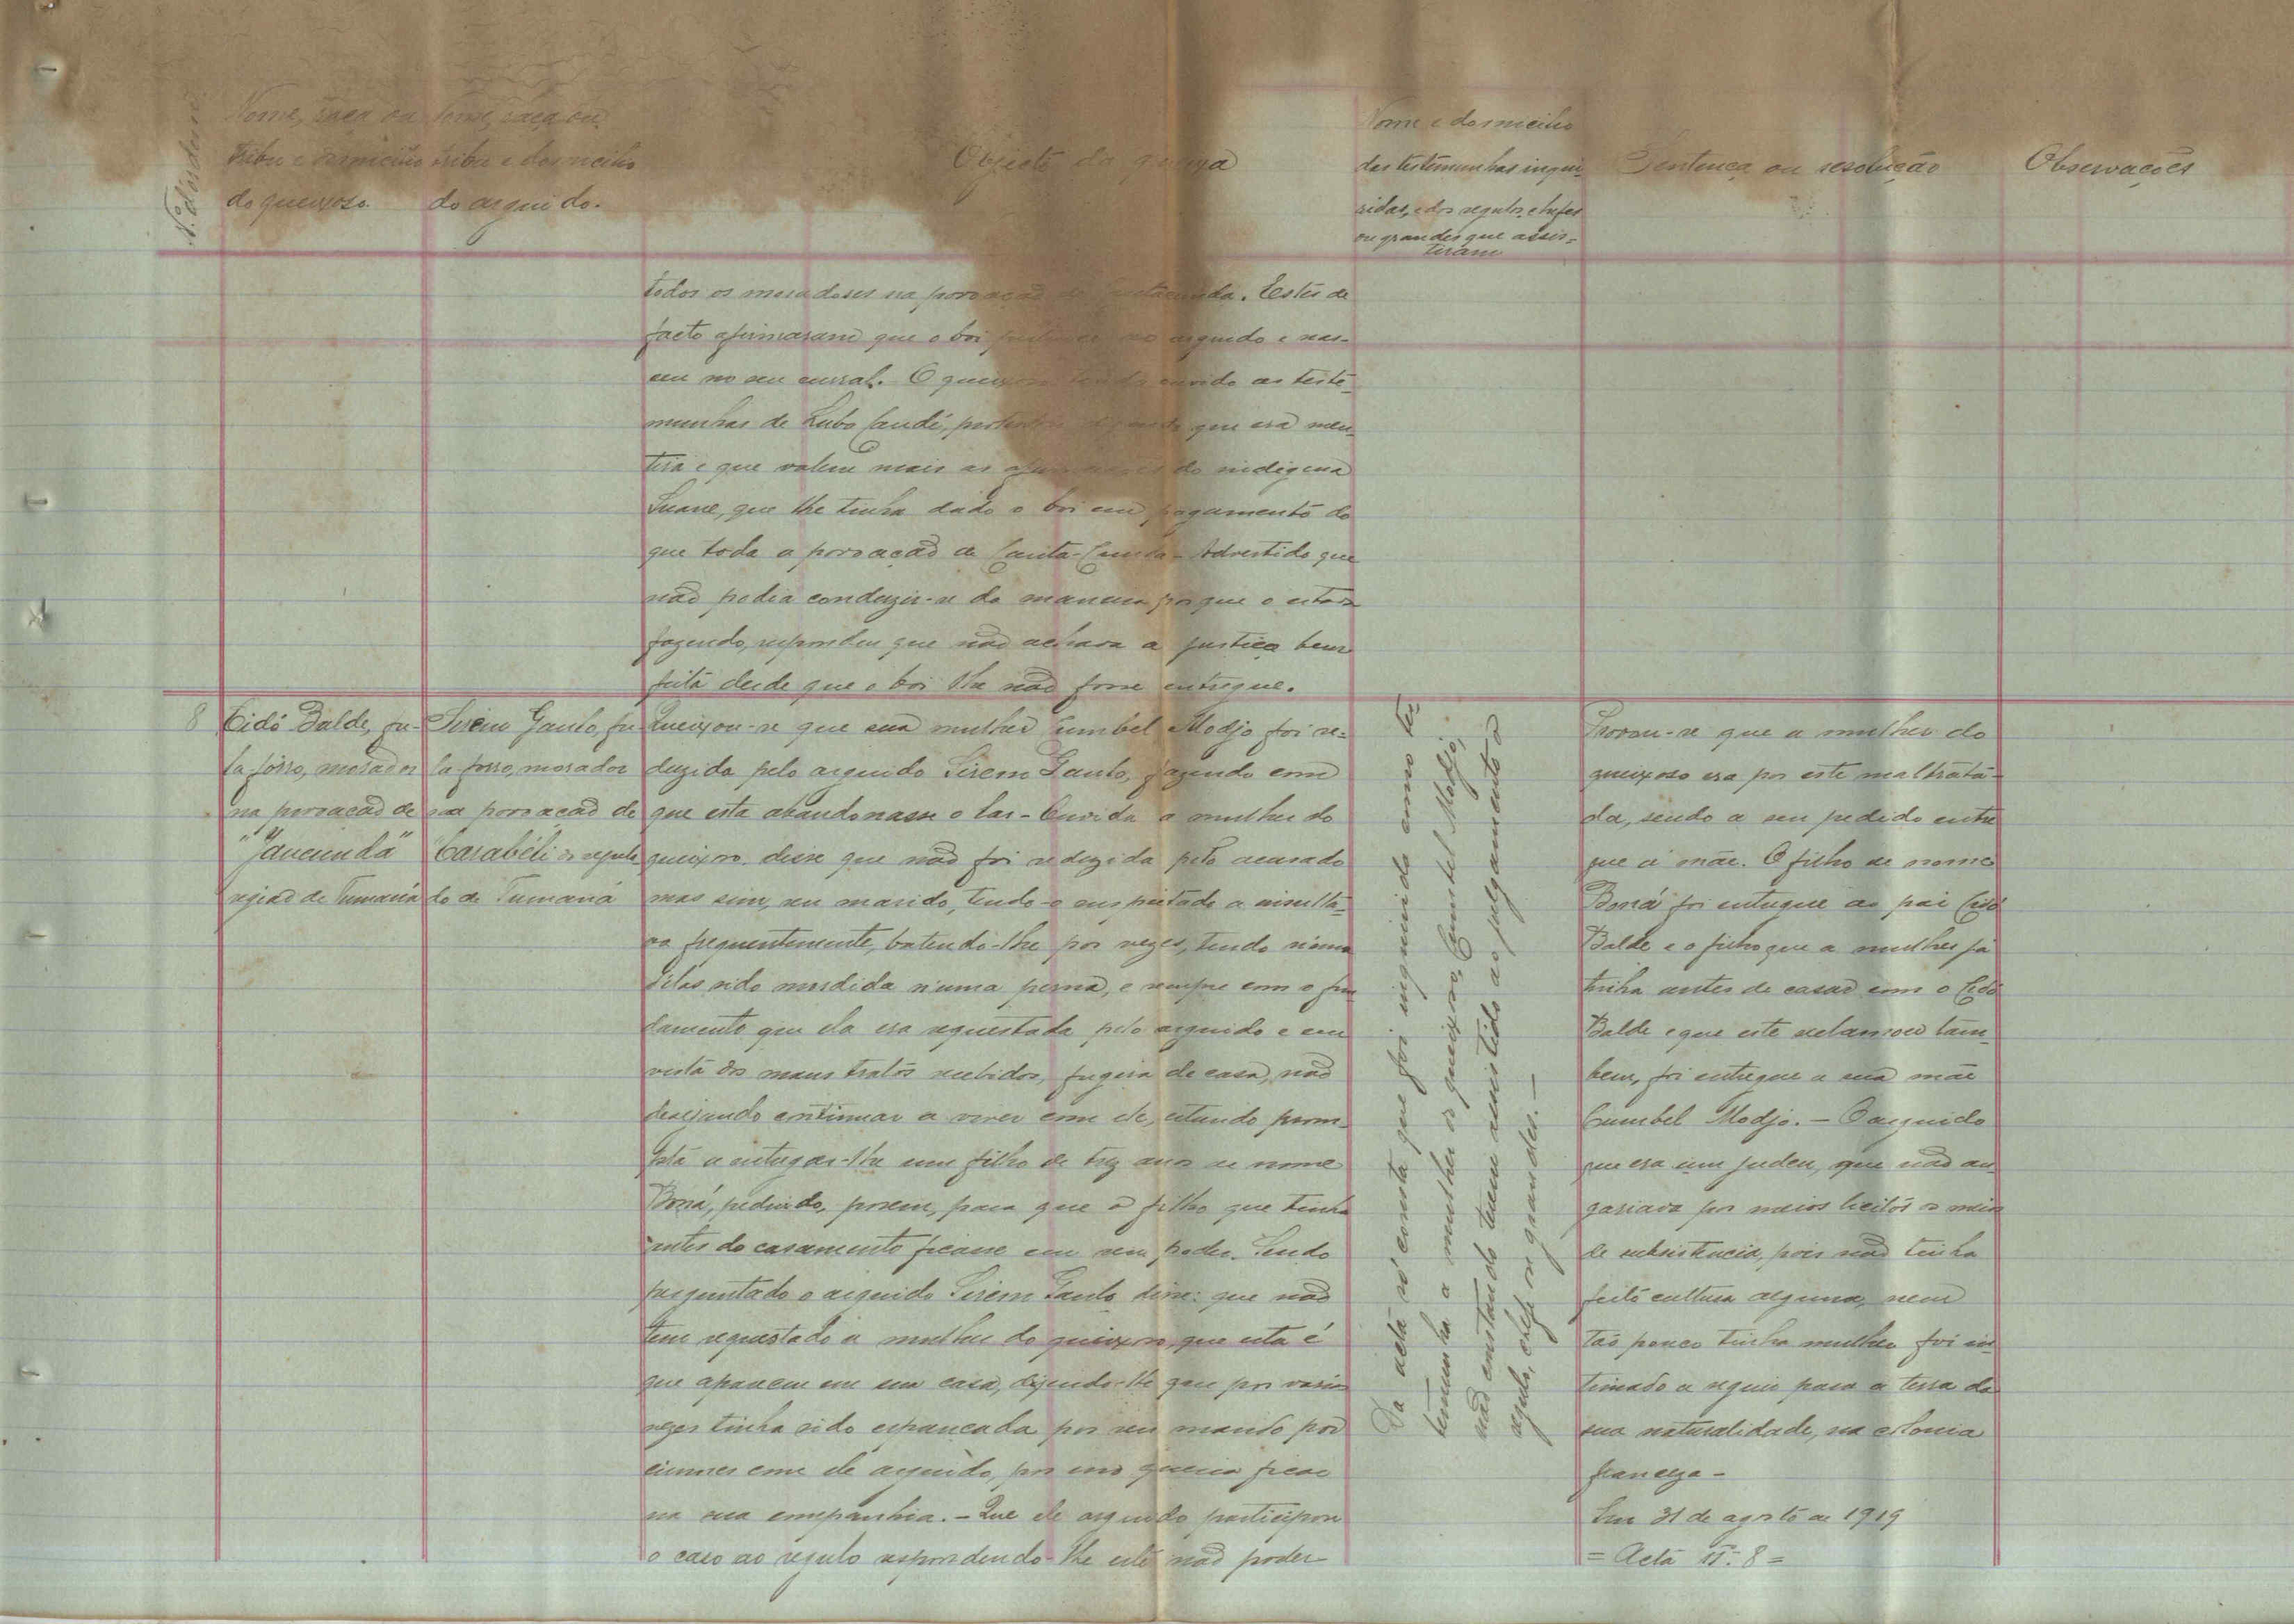 N.º de ordem
Nome, raça ou
tribu e domicilio
do queixoso.
Nome, raça ou
tribu e domicilio
do arguido.
Objecto da queixa
Nome e domicilio
das testemunhas inqui-
ridas, e dos regulos, chefes
ou grandes que assis-
tiram
Sentença ou resolução
Observações
todos os moradores na povoação de . Estes de
facto afirmaram que o boi pertence ao arguido e nas-
ceu no seu curral. O queixoso tendo ouvido as teste-
munhas de Lubo Candé, que era men-
tira e que valem mais as afirmações do indigena
Suane, que lhe tinha dado o boi em pagamento do
que toda a povoação de Canta-Cunda - Advertido que
não podia conduzir-se da maneira porque o estava
fazendo, respondeu que não achava a justiça bem
feita desde que o boi lhe não fosse entregue.
8
Cidô Balde, fu-
la-fôrro, morador
na povoação de
"Jaucunda"
região de Tumaná
Sirem Ganto, fu-
la forro, morador
na povoação de
"Carabéli do regula-
do de Tumaná
Queixou-se que sua mulher Cumbél Modjo foi se-
duzida pelo arguido Sirem Ganto, fazendo com
que esta abandonasse o lar - Ouvida a mulher do
queixoso disse que não foi seduzida pelo acusado
mas sim, seu marido, tendo-o suspeitado a insulta-
va frequentemente, batendo-lhe por vezes, tendo n'uma
delas sido mordida n'uma perna, e sempre com o fun
damento que ela era requestada pelo arguido e em
vista dos maus tratos recebidos, fugira de casa, não
desejando continuar a viver com ele, estando prom-
pta a entregar-lhe um filho de trez anos de nome
Borá, pedindo, porem, para que o filho que tinha
antes do casamento ficasse em seu poder. Sendo
perguntado o arguido Sirem Ganto disse: que não
tem requestado a mulher do queixoso, que esta é
que apareceu em sua casa, dizendo-lhe que por varias
vezes tinha sido espancada por seu marido por
ciumes com ele arguido, por isso queria ficar
na sua companhia. - Que ele arguido participou
o caso ao regulo respondendo-lhe este não poder
Da acta só consta que foi inquirida como tes-
temunha a mulher do queixoso, Cumbel Modjo,
não constando terem assistido ao julgamento o
regulo, chefe ou grandes. -
Provou-se que a mulher do
queixoso era por este maltrata-
da, sendo a seu pedido entre
gue á mãe. O filho de nome
Borá foi entregue ao pai Cidô
Balde e o filho que a mulher já
tinha antes de casar com o Cidô
Balde e que este reclamou tam-
bem, foi entregue a sua mãe
Cumbel Modjo. - O arguido
que era um judeu, que não an-
gariava por meios licitos os meios
de subsistencia, pois não tinha
feito cultura alguma, nem
tão pouco tinha mulher foi in-
timado a seguir para a terra da
sua naturalidade, na colonia
franceza -
Em 31 de agosto de 1919
= Acta N.º 8 =